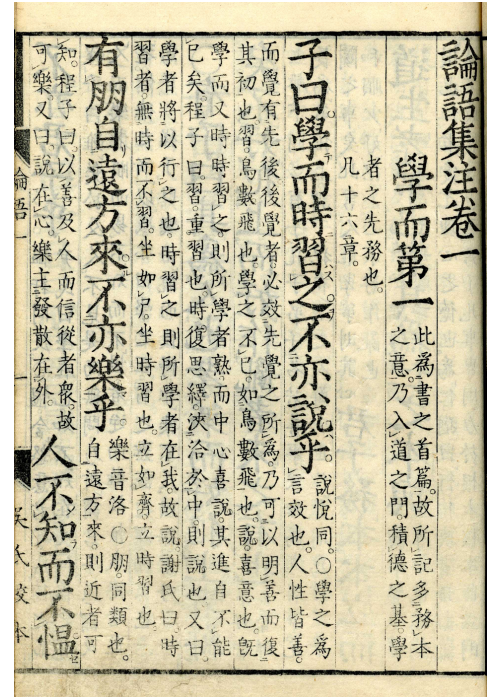 論語集注卷一
學而第一
此爲書之首篇。故所記多務本
之意。乃入道之門積德之基。學
者之先務也。
凡十六章。
子曰。學而時習之。不亦說乎。
說悅同。○學之爲
言效也。人性皆善。
而覺有先後。後覺者。必效先覺之所爲。乃可以明善而復
其初也。習。鳥數飛也。學之不已。如鳥數飛也。說。喜意也。既
學而又時時習之。則所學者熟。而中心喜說。其進自不能
已矣。程子曰。習。重習也。時復思繹。浹洽於中。則說也。又曰。
學者將以行之也。時習之則所學者在我。故說。謝氏曰。時
習者。無時而不習。坐如尸。坐時習也。立如齊。立時習也
有朋自遠方來。不亦樂乎
樂音洛○朋。同類也。
自遠方來。則近者可
知。程子曰。以善及人而信從者衆。故
可樂。又曰。說在心。樂主發散在外。
人不知而不慍
論語一
一
吳氏校本